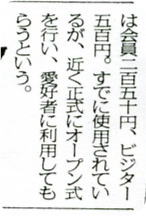 は会員二百五十円、ビジター
五百円。すでに使用されてい
るが、近く正式にオープン式
を行い、愛好者に利用しても
らうという。